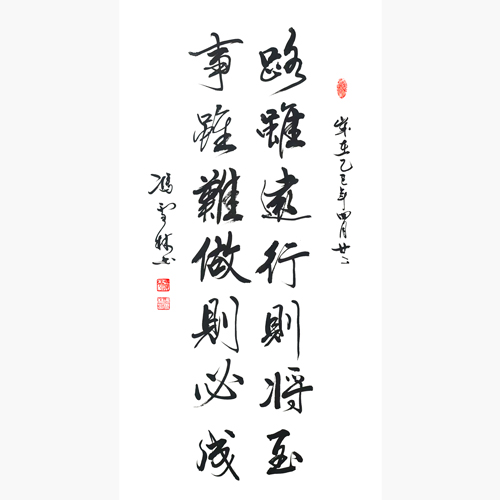 歲在乙巳年四月廿二
路雖遠行則將至
事雖難做則必成
馮雪林书